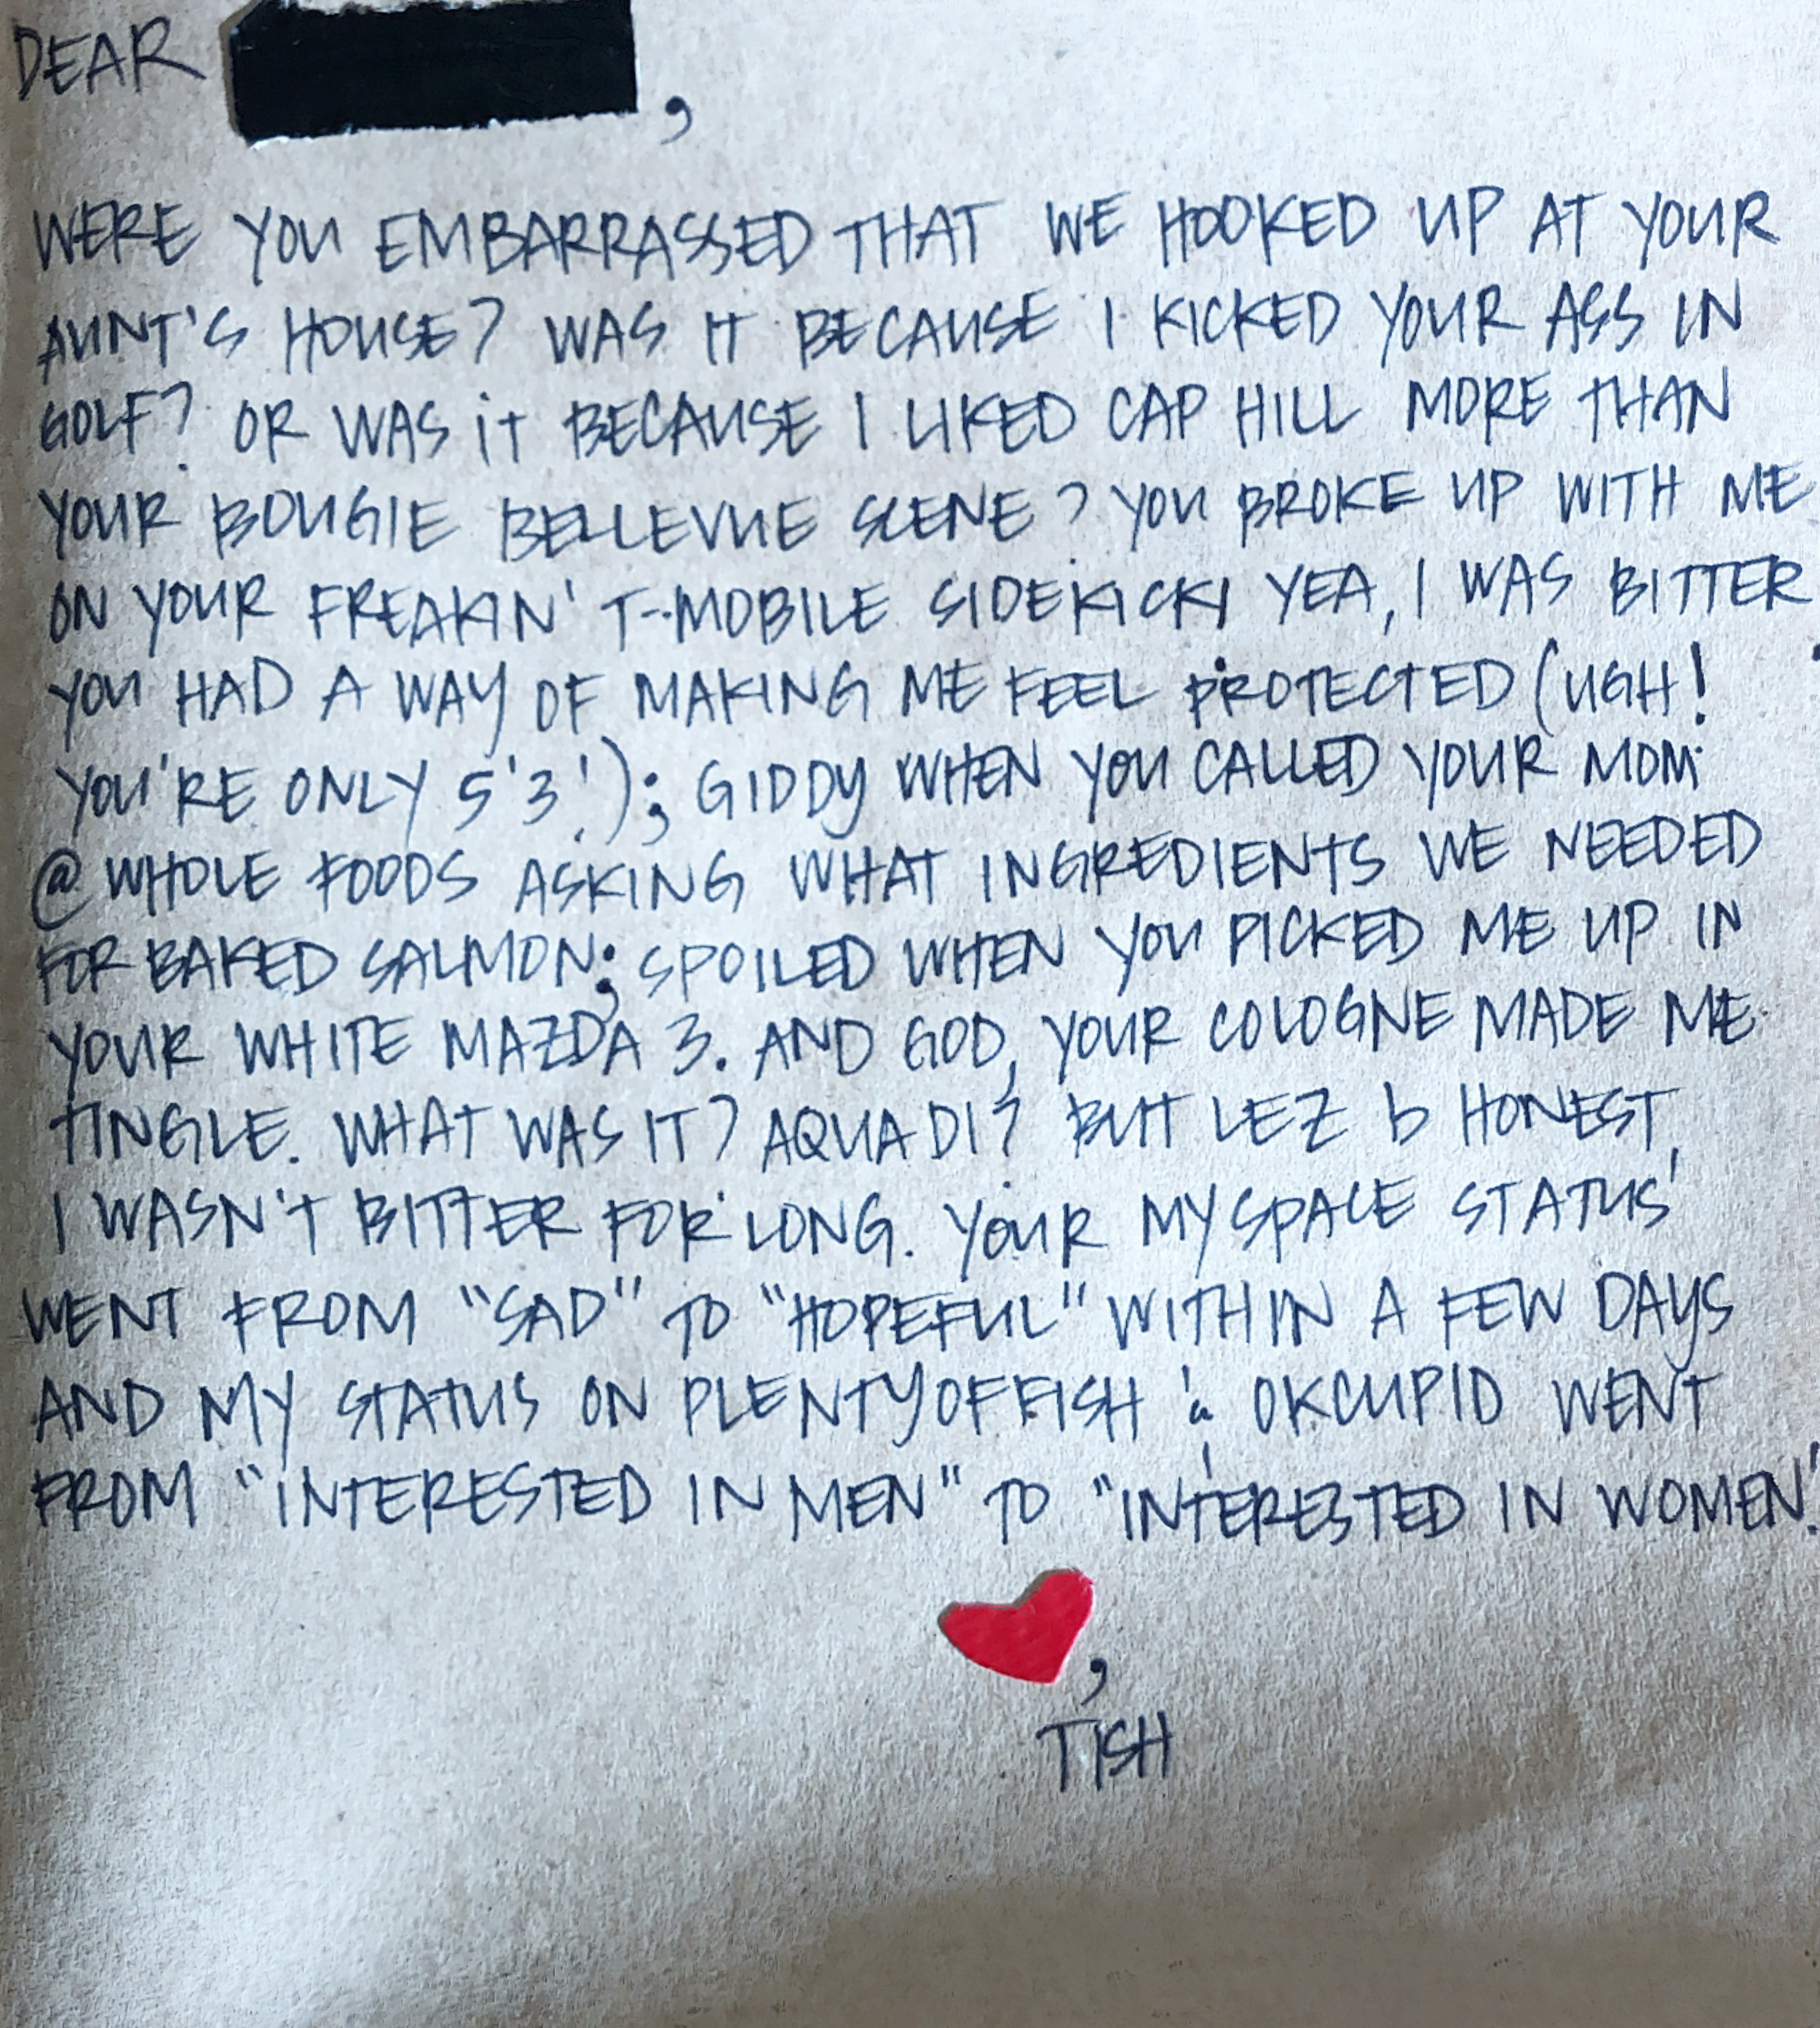 DEAR ,
WERE YOU EMBARRASSED THAT WE HOOKED UP AT YOUR
AUNT'S HOUSE? WAS IT BECAUSE I KICKED YOUR ASS IN
GOLF? OR WAS iT BECAUSE I LIKED CAP HILL MORE THAN
YOUR BOUGIE BELLEVUE SCENE? YOU BROKE UP WITH ME
ON YOUR FREAKIN' T-MOBILE SIDEKICK! YEA, I WAS BITTER.
YOU HAD A WAY OF MAKING ME FEEL PROTECTED (UGH!
YOU'RE ONLY 5'3!); GIDDY WHEN YOU CALLED YOUR MOM
@ WHOLE FOODS ASKING WHAT INGREDIENTS WE NEEDED
FOR BAKED SALMON; SPOILED WHEN YOU PICKED ME UP IN
YOUR WHITE MAZDA 3. AND GOD, YOUR COLOGNE MADE ME
TINGLE. WHAT WAS IT? AQUA DI? BUT LEZ b HONEST,
I WASN'T BITTER FOR LONG. YOUR MYSPACE STATUS
WENT FROM "SAD" TO "HOPEFUL" WITHIN A FEW DAYS
AND MY STATUS ON PLENTYOFFISH & OKCUPID WENT
FROM "INTERESTED IN MEN" TO "INTERESTED IN WOMEN."
,
TISH